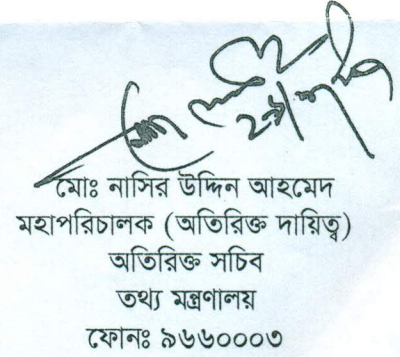 মোঃ নাসির উদ্দিন আহমেদ
মহাপরিচালক (অতিরিক্ত দায়িত্ব)
অতিরিক্ত সচিব
তথ্য মন্ত্রণালয়
ফোনঃ ৯৬৬০০০৩